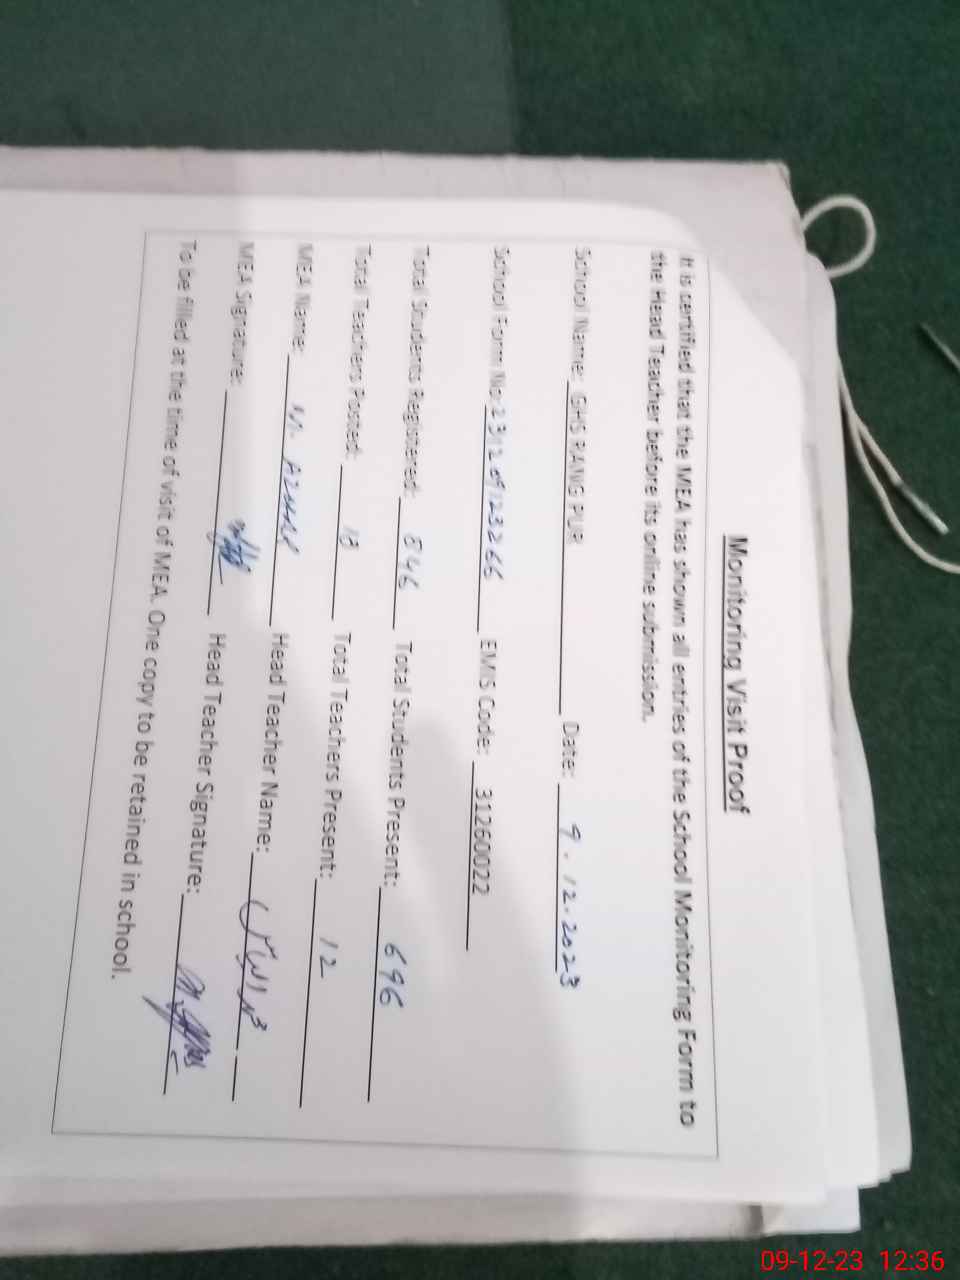 Monitoring Visit Proof
It is certified that the MEA has shown all entries of the School Monitoring Form to
the Head Teacher before its online submission.
School Name: GHS RANG PUR Date: 9.12.2023
School Form No: 231209123266 EMIS Code: 31260022
Total Students Registered: 846 Total Students Present: 696
Total Teachers Posted: 18 Total Teachers Present: 12
MEA Name: M. Head Teacher Name:
MEA Signature: Head Teacher Signature:
To be filled at the time of visit of MEA. One copy to be retained in school.
09-12-23 12:36